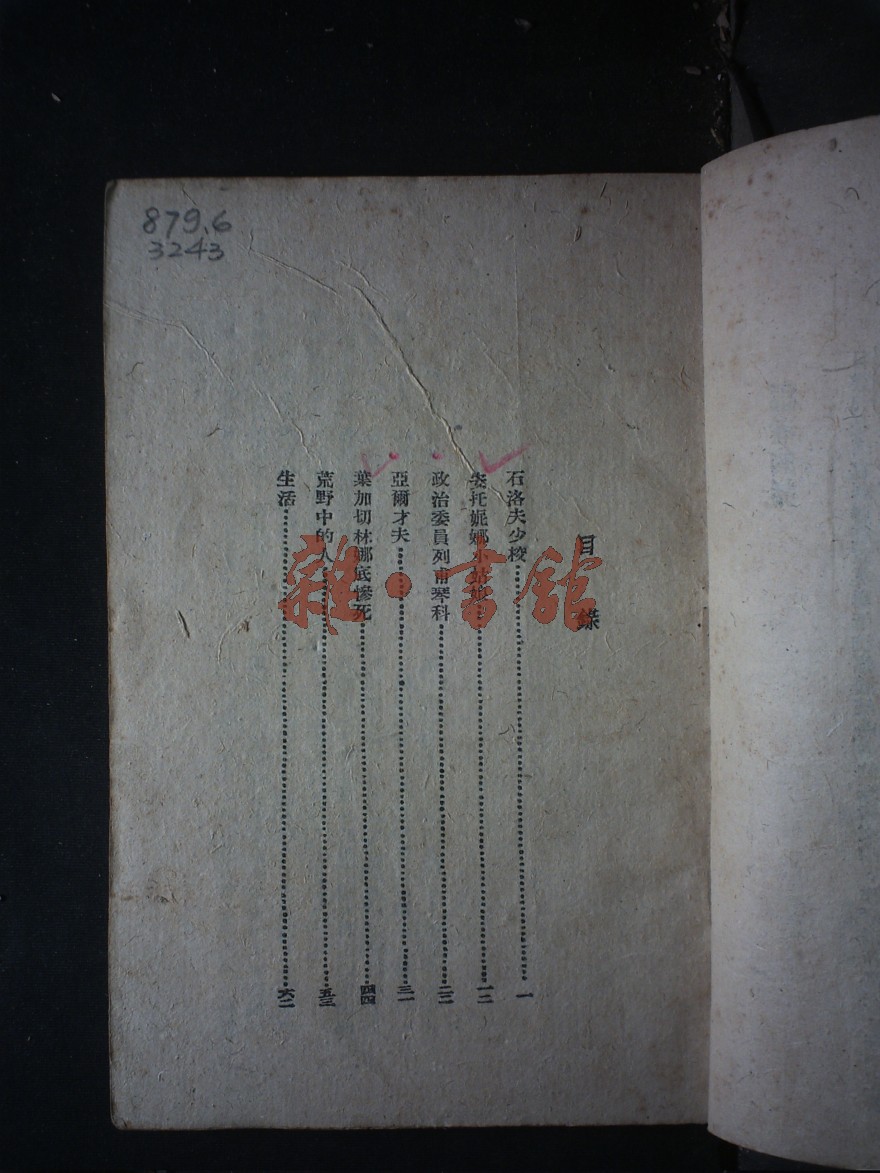 879.6
3243
目錄
石洛夫少校 一
安托妮娜小姑娘 一二
政治委員列甫琴科 二二
亞爾才夫 三一
葉加切林娜底慘死 四四
荒野中的人 五三
生活 六二
雜·書館